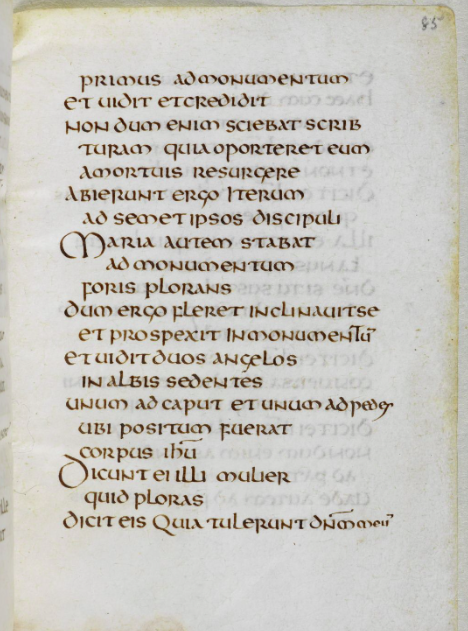 85
primus ad monumentum
et uidit et credidit
non dum enim sciebat scrib
turam quia oporteret eum
a mortuis resurgere
abierunt ergo iterum
ad semet ipsos discipuli
Maria autem stabat
ad monumentum
foris plorans
dum ergo fleret inclinauit se
et prospexit in monumentū
et uidit duos angelos
in albis sedentes
unum ad caput et unum ad pedes
ubi positum fuerat
corpus ihū
Dicunt ei illi mulier
quid ploras
dicit eis Quia tulerunt dn̄m meū